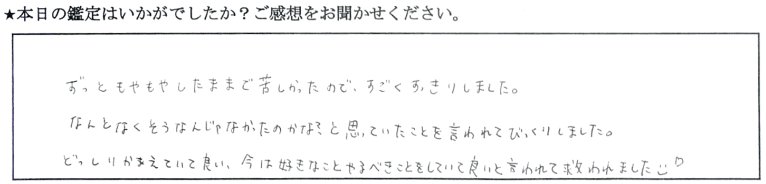 ★本日の鑑定はいかがでしたか？ご感想をお聞かせください。
ずっともやもやしたままで苦しかったので、すごくすっきりしました。
なんとなくそうなんじゃなかったのかな？と思っていたことを言われてびっくりしました。
どっしりかまえていて良い、今は好きなことややるべきことをしていて良いと言われて救われました